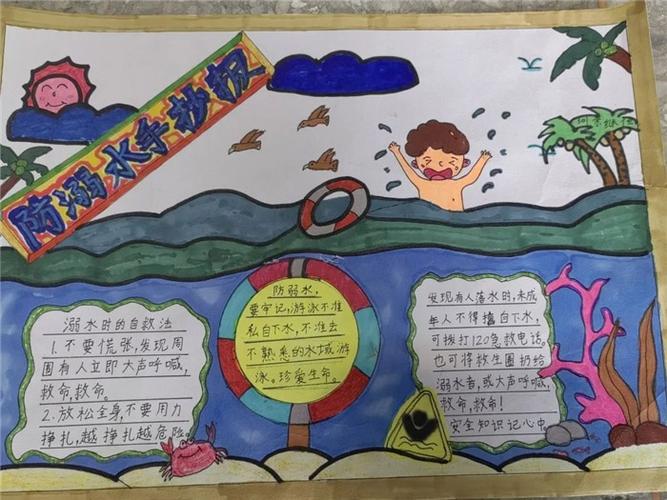 防溺水手抄报
溺水时的自救法
1.不要慌张,发现周
围有人立即大声呼喊,
救命,救命。
2.放松全身,不要用力
挣扎,越挣扎越危险。
防溺水,
要牢记,游泳不准
私自下水,不准去
不熟悉的水域游
泳。珍爱生命。
发现有人落水时,未成
年人不得擅自下水,
可拨打120急救电话。
也可将救生圈扔给
溺水者,或大声呼喊,
救命,救命!
安全知识记心中。